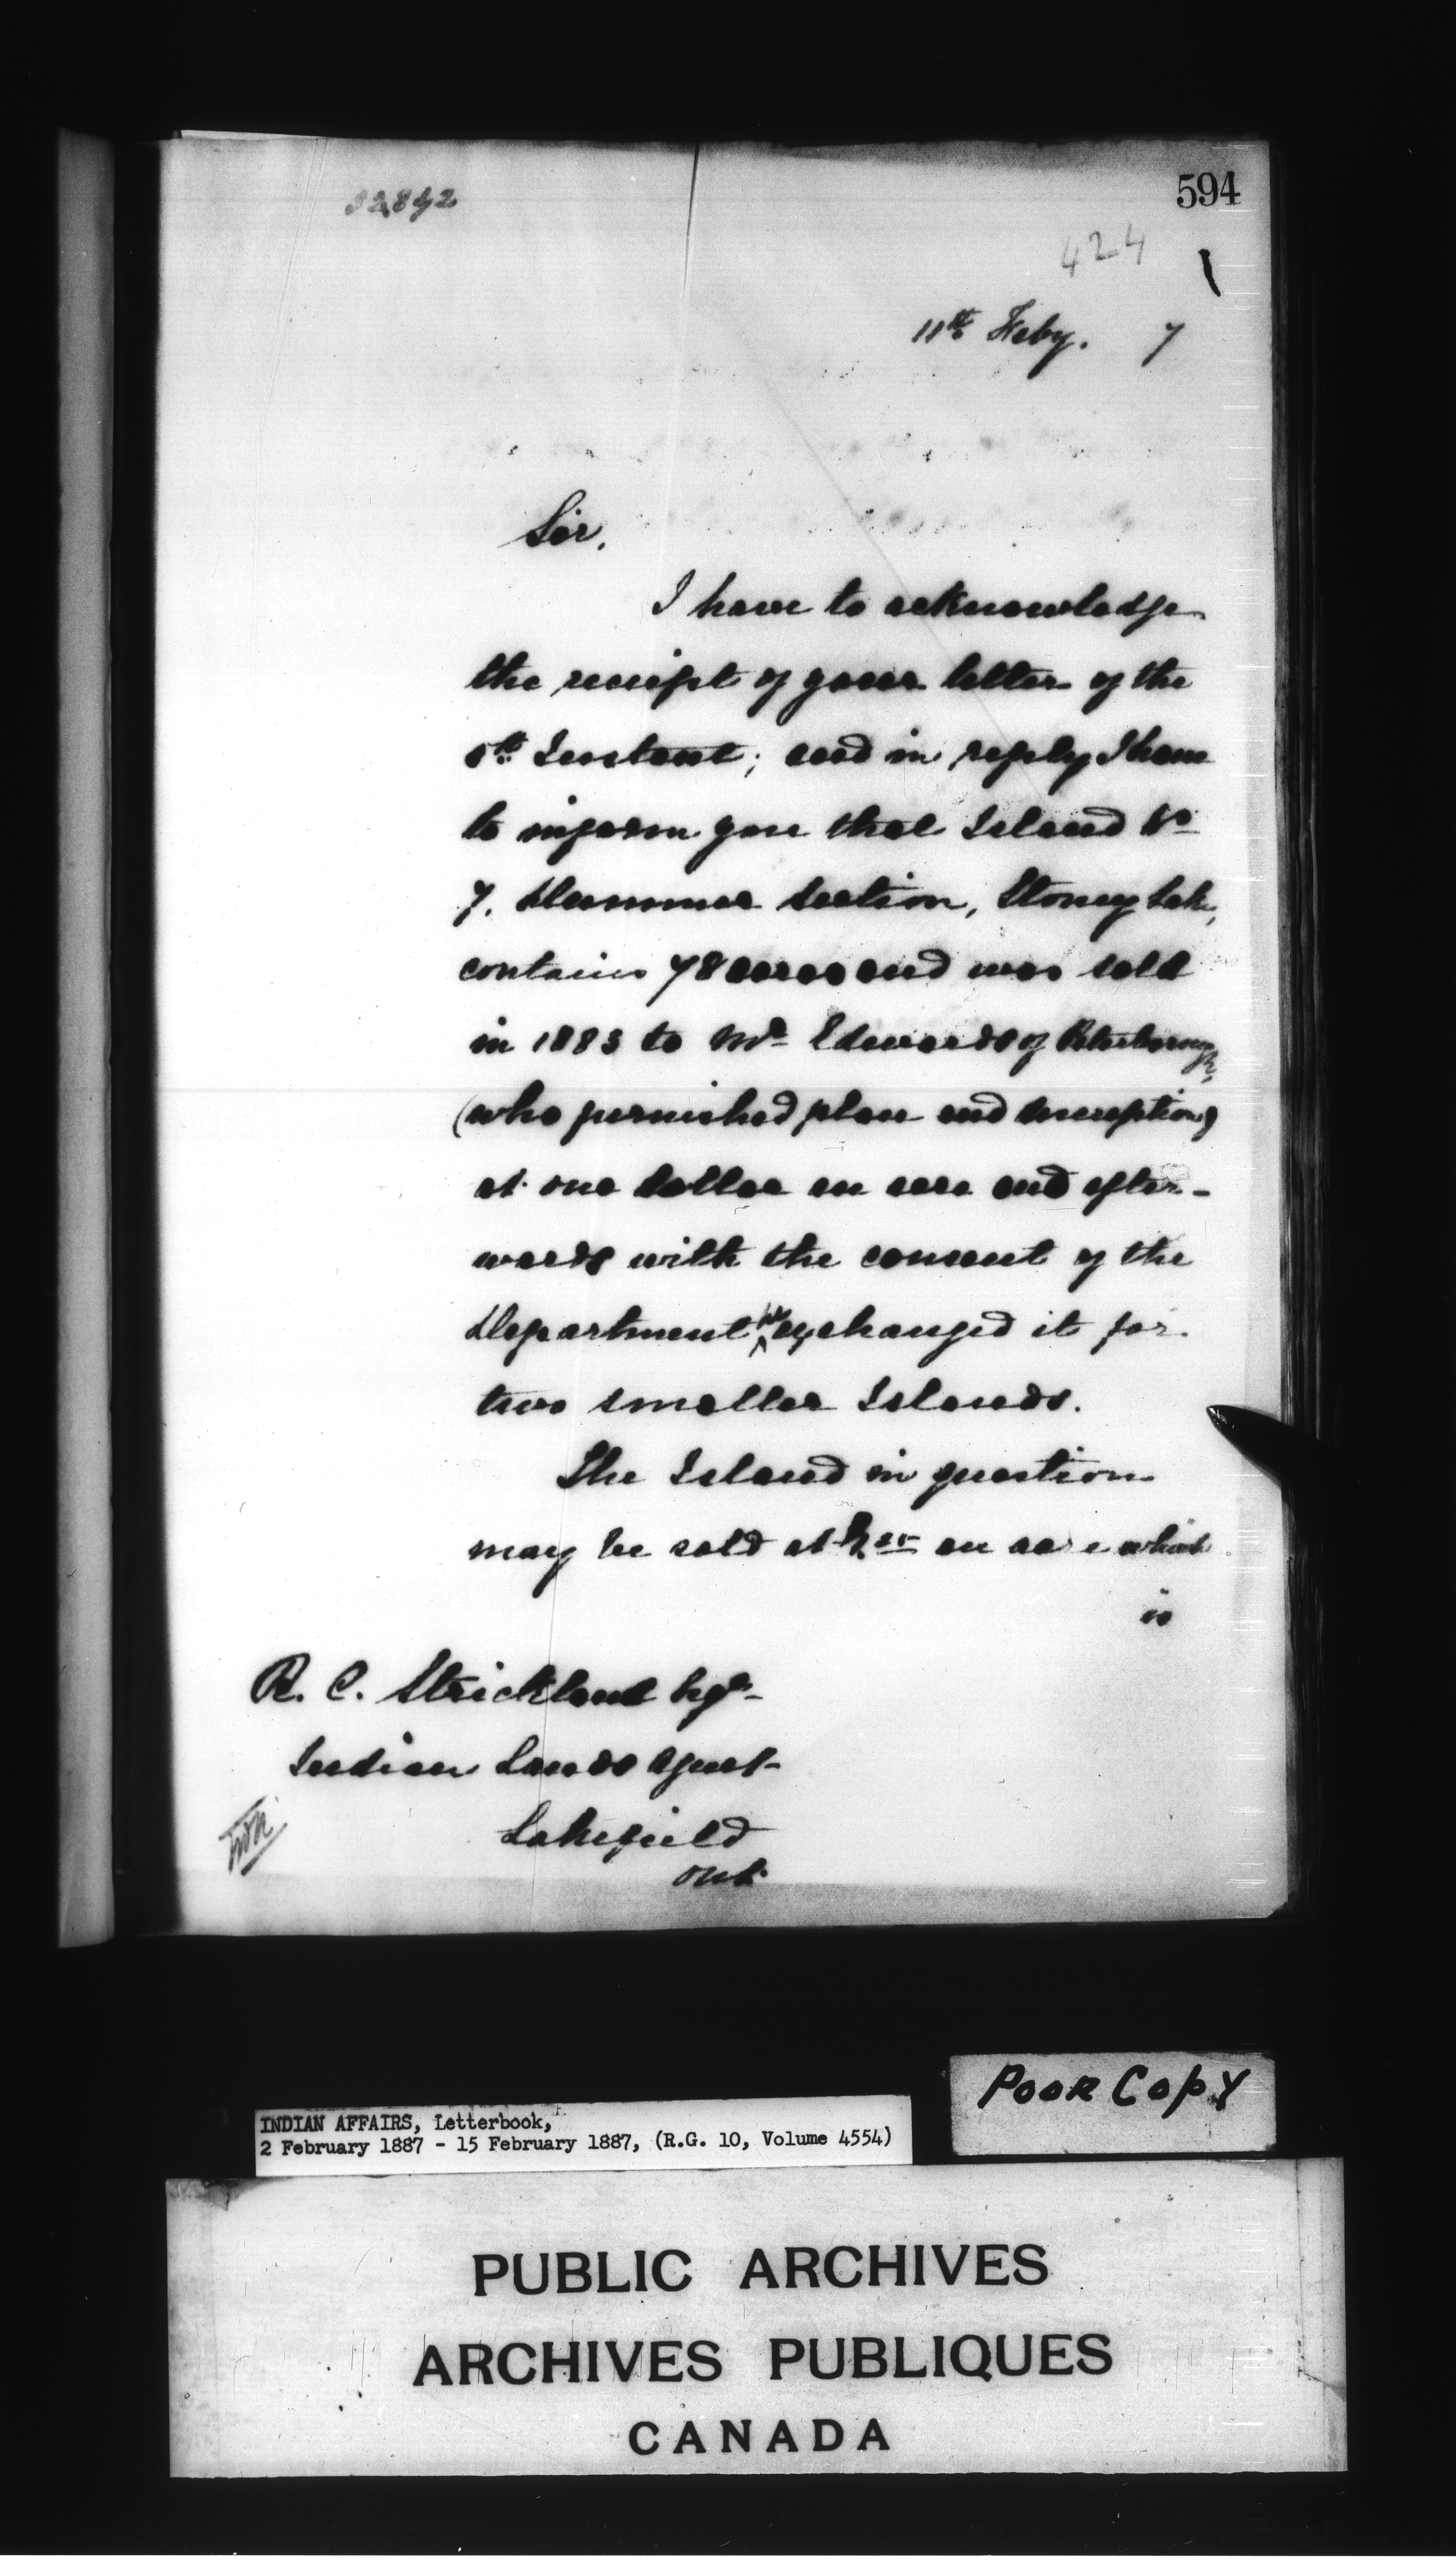 594
424
11th Feby. 7
Sir,
I have to acknowledge
the receipt of your letter of the
5th Instant; and in reply I have
to inform you that Island No
7, Dummer Section, Stoney Lake,
contains 78 acres and was sold
in 1883 to Mr Edwards of Peterborough,
(who furnished plan and description)
at one dollar an acre and after-
wards with the consent of the
Department he exchanged it for
two smaller Islands.
The Island in question
may be sold at an acre which
is
R. C. Strickland Esqr
Indian Lands Agent
Lakefield
Ont.
Poor Copy
INDIAN AFFAIRS, Letterbook,
2 February 1887 - 15 February 1887, (R.G. 10, Volume 4554)
PUBLIC ARCHIVES
ARCHIVES PUBLIQUES
CANADA